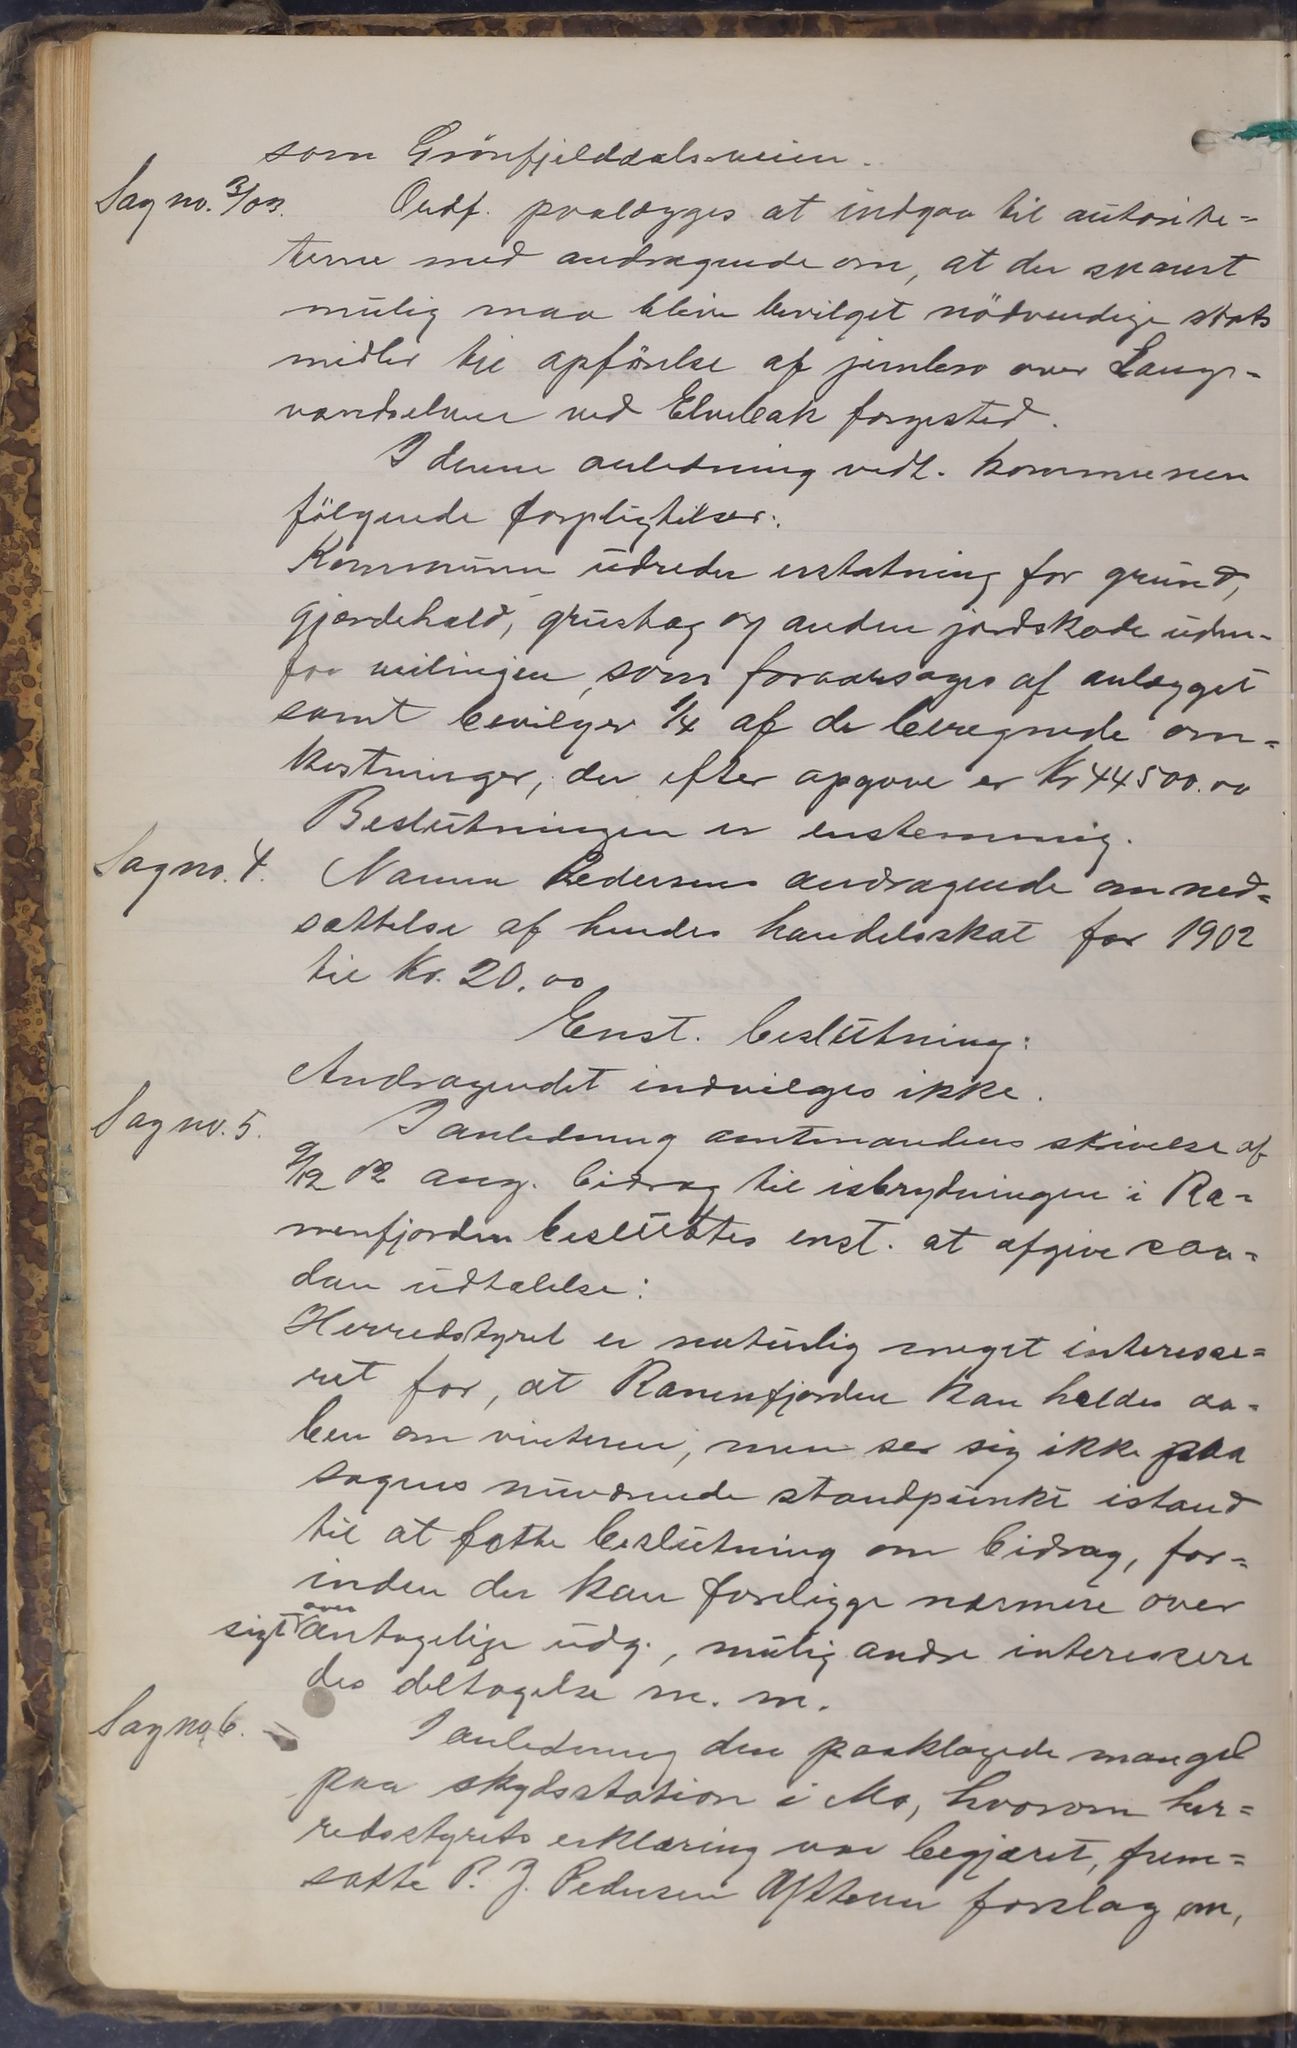 som Grönfjelddalsveien.
Sag no. 3/03. Ordf. paalægges at indgaa til autorite-
terne med andragende om, at der snarest
mulig maa blive bevilget nödvendige stats
midler til opförelse af jernbro over Langs-
vandselven ved Elvebak forgested.
I denne anledning vedt. kommunen
fölgende forpligtelser:
Kommunen udreder erstatning for grund,
gjerdehold, grustag og anden jordskade uden-
for veilinjen, som foraarsages af anlægget
samt bevilger 1/4 af de beregnede om-
kostninger, der efter opgave er Kr 44500.00
Beslutningen er enstemmig.
Sag no. 4. Nanna Pedersens andragende om ned-
sættelse af hendes handelsskat for 1902
til Kr. 20.00
Enst. beslutning:
Andragendet indvilges ikke.
Sag no. 5. I anledning amtmandens skrivelse af
9/12 02 ang. bidrag til isbrydningen i Ra-
nenfjorden besluttes enst. at afgive saa-
dan udtalelse:
Herredstyret er naturlig meget interesse-
ret for, at Ranenfjorden kan holdes aa-
ben om vinteren, men ser sig ikke paa
sagens nuværende standpunkt istand
til at fatte beslutning om bidrag, for-
inden der kan foreligge nærmere over
sigt over antagelige udg., mulig andre interessere
des deltagelse m. m.
Sag no 6. I anledning den paaklagede mangel
paa skydsstation i Mo, hvorom her-
redsstyrets erklæring var begjæret, frem-
satte P. J. Pedersen Ytteren forslag om,